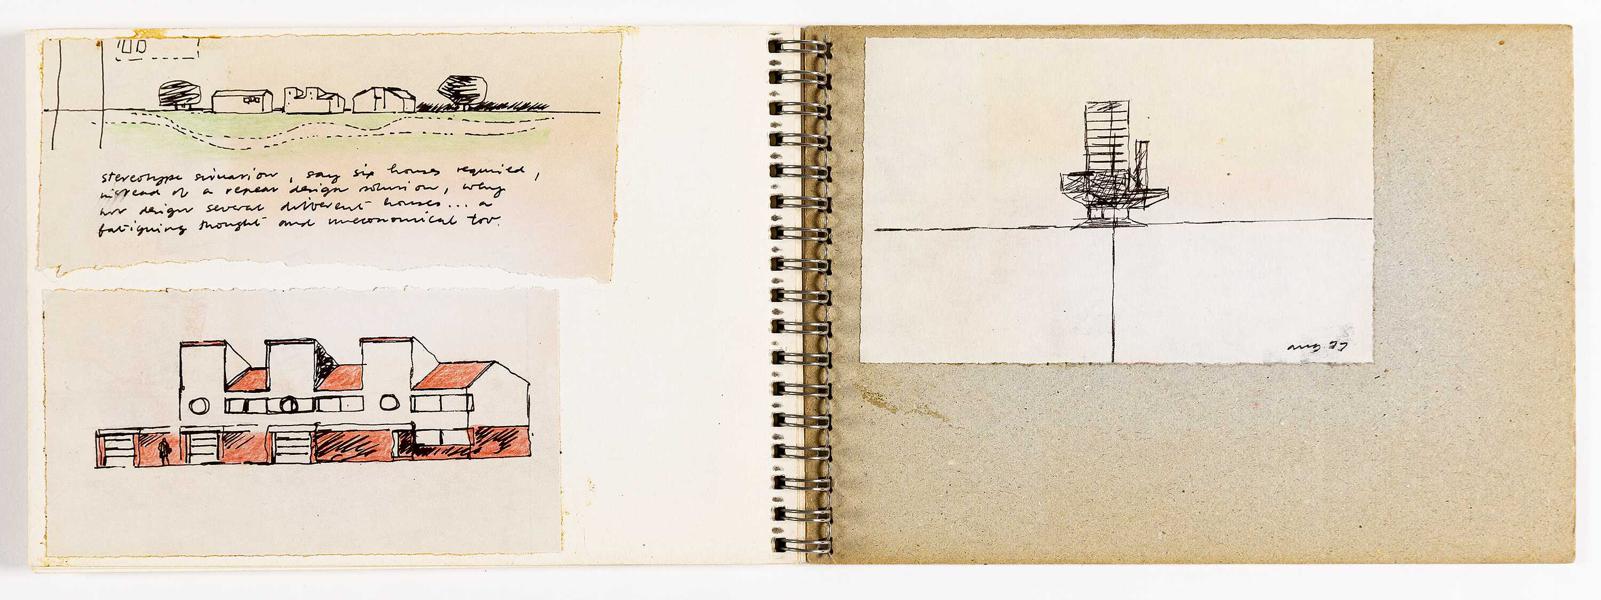 stereotype situation, say six houses required,
instead of a repeat design solution, why
not design several different houses... a
fatiguing thought and uneconomical too.
aug 77